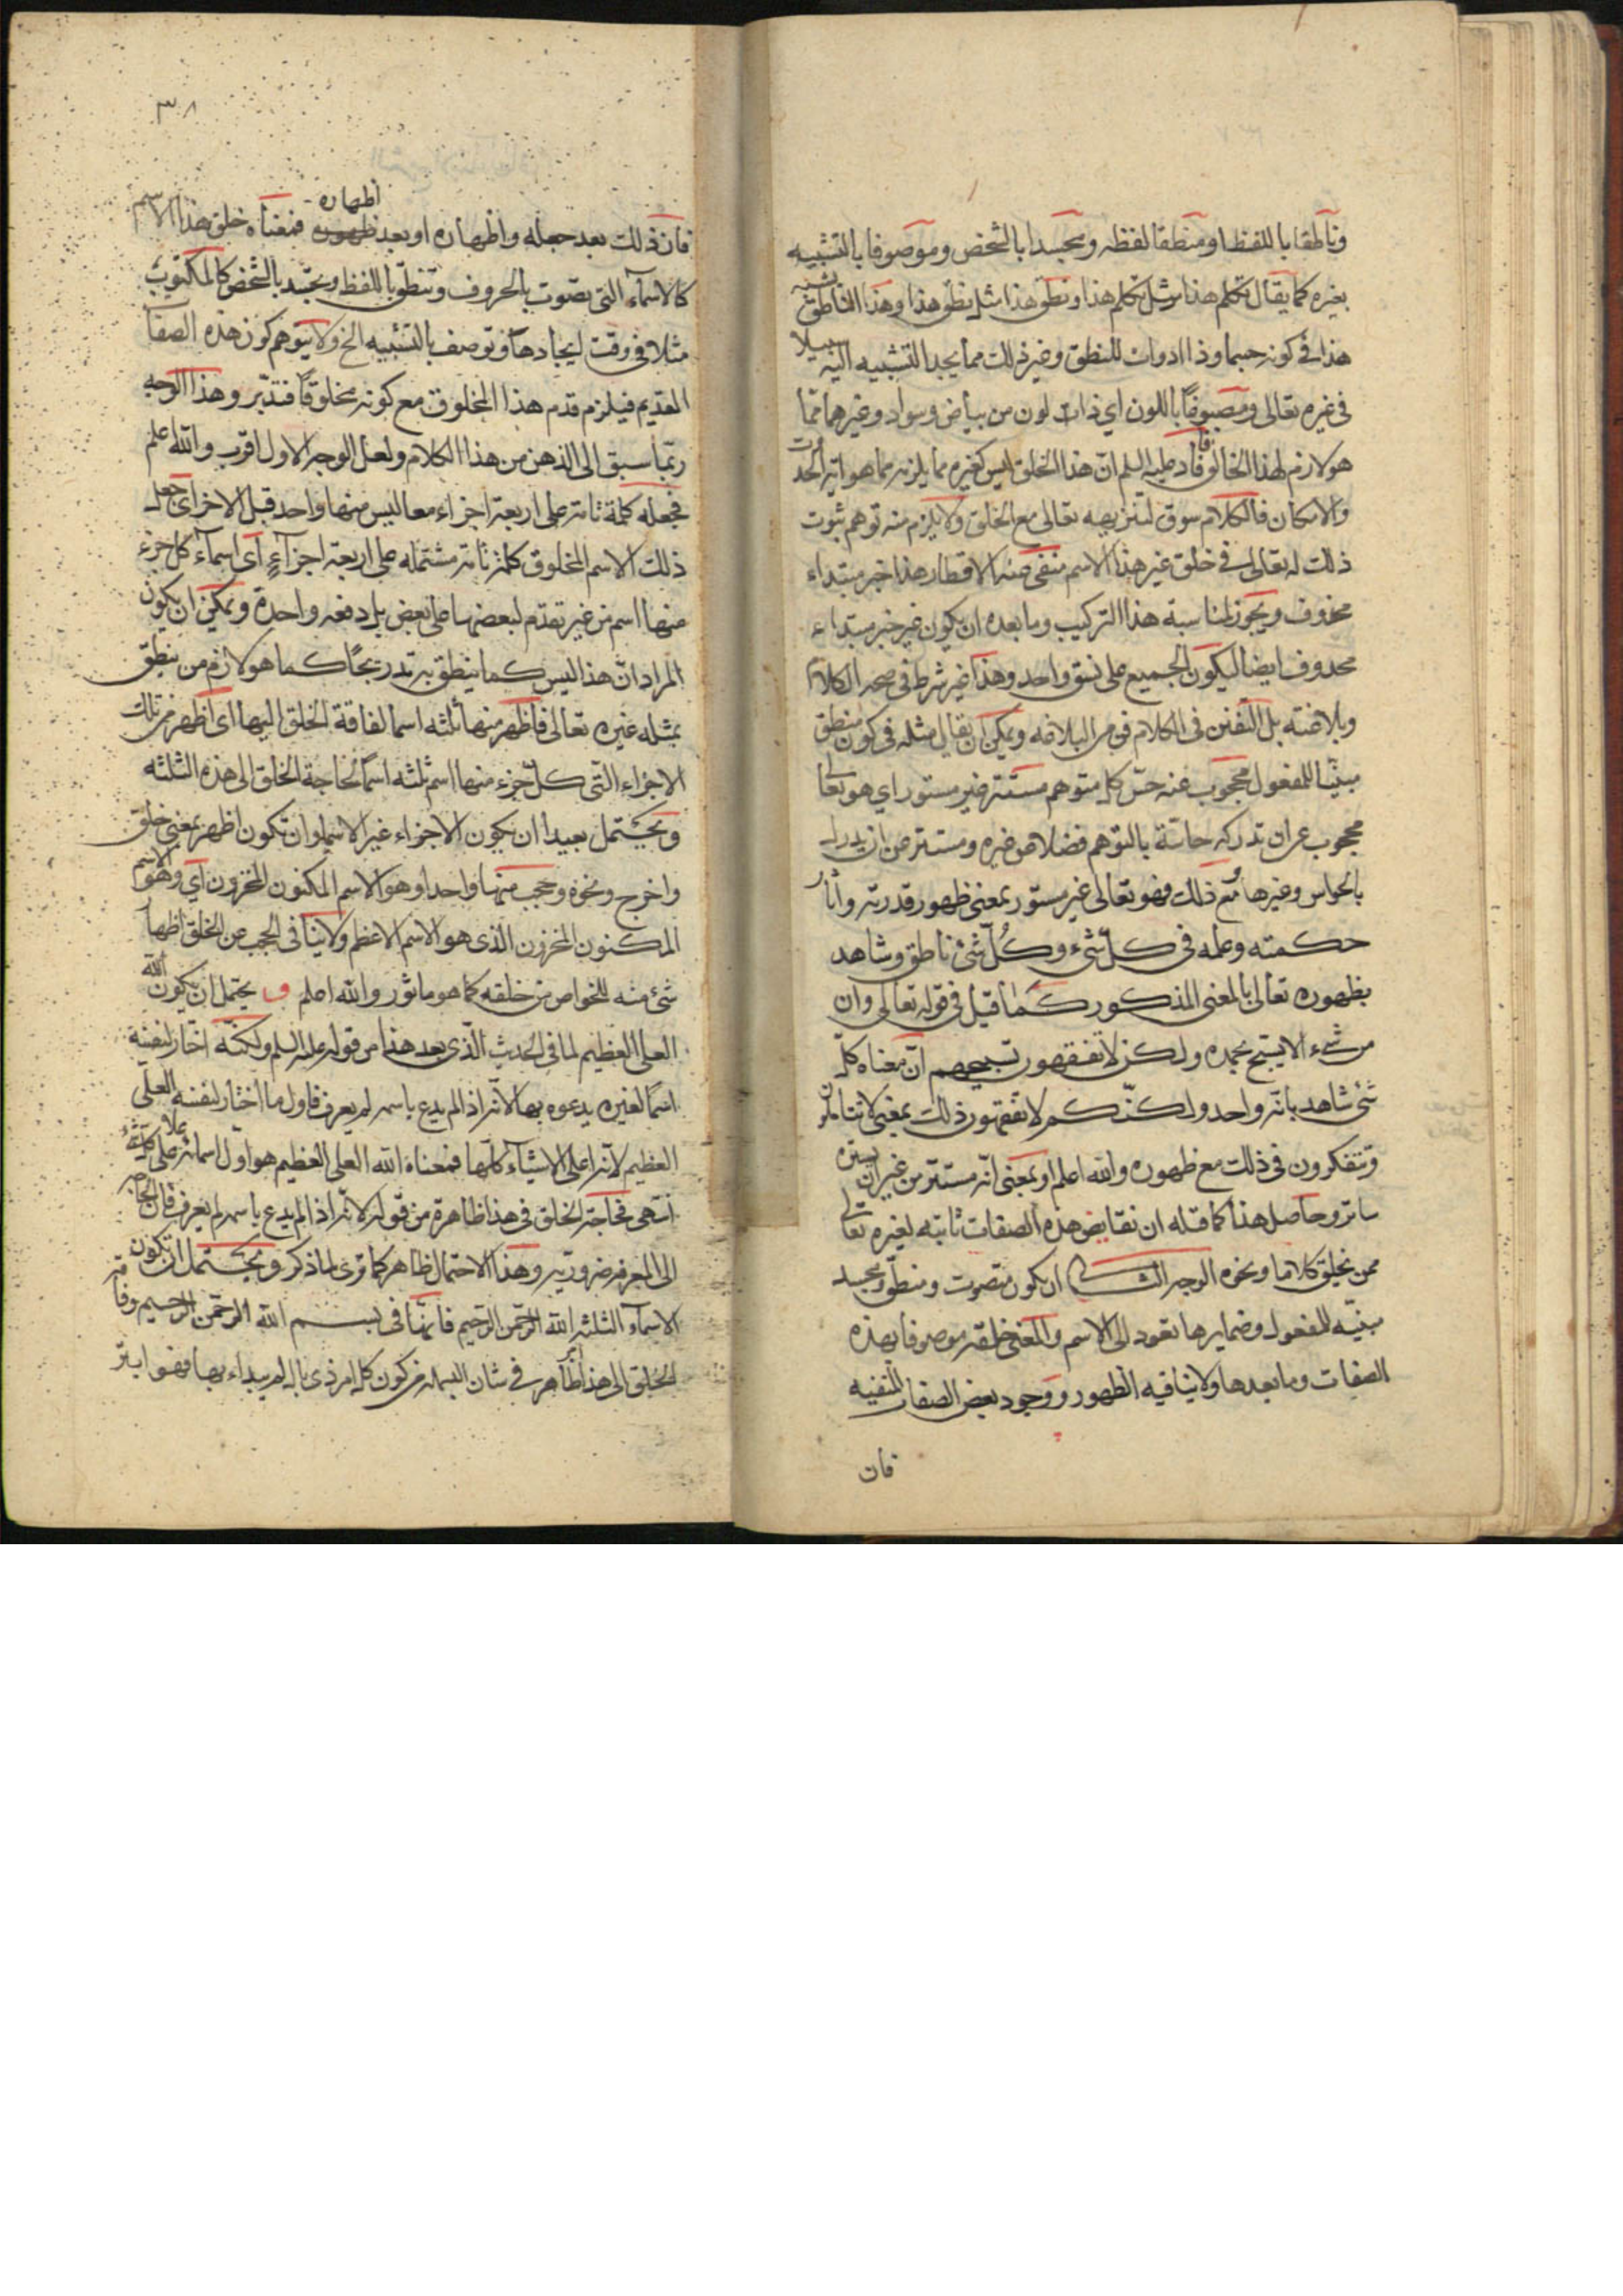 وناطقا باللفظ او منطقا لفظه ومجسدا بالشخص وموصوفا بالتشبيه
بغيره كما يقال تكلم هذا مثل تكلم هذا ونطق هذا مثل نطق هذا وهذا الناطق يشبه
هذا في كونه جسما وذا ادوات للنطق وغير ذلك مما يجد التشبيه اليه سبيلا
في غيره تعالى ومصبوغا باللون اي ذات لون من بياض وسواد وغيرهما مما
هو لازم لهذا الخالق فافاد عليه السلم ان هذا الخلق ليس كغيره مما يلزمه مما هو اية الحدوث
والامكان فالكلام سوق لتنزيهه تعالى مع الخلق ولا يلزم منه توهم ثبوت
ذلك له تعالى في خلق غير هذا الاسم منفى عنه الاقطار هذا خبر مبتداء
محذوف ويجوز لمناسبة هذا التركيب وما بعده ان يكون غير خبر مبتداء
محذوف ايضا ليكون الجميع على نسق واحد وهذا غير شرط في صحة الكلام
وبلاغته بل التفنن في الكلام فن من البلاغه ويمكن ان يقال مثله في كون منطق
مبنيا للمفعول محجوب عنه حس كل متوهم مستتر غير مستور اي هو تعالى
محجوب عن ان تدركه حاسة بالتوهم فضلا عن غيره ومستتر عن ان يدرك
بالحواس وغيرها ومع ذلك فهو تعالى غير مستور بمعنى ظهور قدرته واثار
حكمته وعلمه في كل شيء وكل شئ ناطق وشاهد
بظهوره تعالى بالمعنى المذكور كما قيل في قوله تعالى وان
من شيء الا يسبح بحمده ولكن لا تفقهون تسبيحهم ان معناه كل
شئ شاهد بانه واحد ولكنكم لا تفقهون ذلك بمعنى لا تتاملون
وتتفكرون في ذلك مع ظهوره والله اعلم او بمعنى انه مستتر من غير ان يستره
ساتر وحاصل هذا كما قبله ان نقايض هذه الصفات ثابته لغيره تعالى
ممن يخلق كلاما ونحوه الوجه الثانى ان يكون متصوت ومنطق ومجسد
مبنيه للمفعول وضمايرها تعود الى الاسم والمعنى خلقه موصوفا بهذه
الصفات وما بعدها ولا ينافيه الظهور ووجود بعض الصفات المنفيه
فان
٣٨
فان ذلك بعد جعله واظهاره او بعد اظهاره فمعناه خلق هذا الاسم
كالاسماء التي تصوت بالحروف وتنطق باللفظ وتجسد بالشخص كالمكتوب
مثلا في وقت ايجادها وتوصف بالتشبيه الخ ولا يتوهم كون هذه الصفات
للقديم فيلزم قدم هذا المخلوق مع كونه مخلوقا فتدبر وهذا الوجه
ربما سبق الى الذهن من هذا الكلام ولعل الوجه الاول اقرب والله اعلم
فجعله كلمة تامة على اربعة اجزاء معا ليس منها واحد قبل الاخر اى جعل
ذلك الاسم المخلوق كلمة تامة مشتمله على اربعة اجزاء اى اسماء كل جزء
منها اسم من غير تقدم لبعضها على بعض بل دفعه واحدة ويمكن ان يكون
المراد ان هذا ليس كما ينطق به تدريجا كما هو لازم من ينطق
بمثله غيره تعالى فاظهر منها ثلثه اسما لفاقة الخلق اليها اى اظهر من تلك
الاجزاء التي كل جزء منها اسم ثلثه اسما لحاجة الخلق الى هذه الثلثه
ويحتمل بعيدا ان يكون الاجزاء غير الاسما وان تكون اظهر بمعنى خلق
واخرج ونحوه وحجب منها واحدا وهو الاسم المكنون المخزون اي وهو الاسم
المكنون المخزون الذى هو الاسم الاعظم ولا ينافى الحجب عن الخلق اظهار
شئ منه للخواص من خلقه كما هو ماثور والله اعلم و يحتمل ان يكون الله
العلى العظيم لما فى الحديث الذى بعد هذا من قوله عليه السلم ولكنه اختار لنفسه
اسما لغيره يدعوه بها لانه اذا لم يدع باسمه لم يعرف فاول ما اختار لنفسه العلى
العظيم لانه اعلى الاشياء كلها فمعناه الله العلى العظيم هو اول اسمائه علا على كل شئ
انتهى فحاجة الخلق فى هذا ظاهرة من قوله لانه اذا لم يدع باسمه لم يعرف فان الحاجه
الى المعرفه ضروريه وهذا الاحتمال ظاهر كما ترى لما ذكر ويحتمل ان تكون
الاسماء الثلثه الله الرحمن الرحيم فانها فى بسم الله الرحمن الرحيم وفاقة
الخلق الى هذا ظاهر في شان البسملة من كون كل امر ذى بال لم يبداء بها فهو ابتر